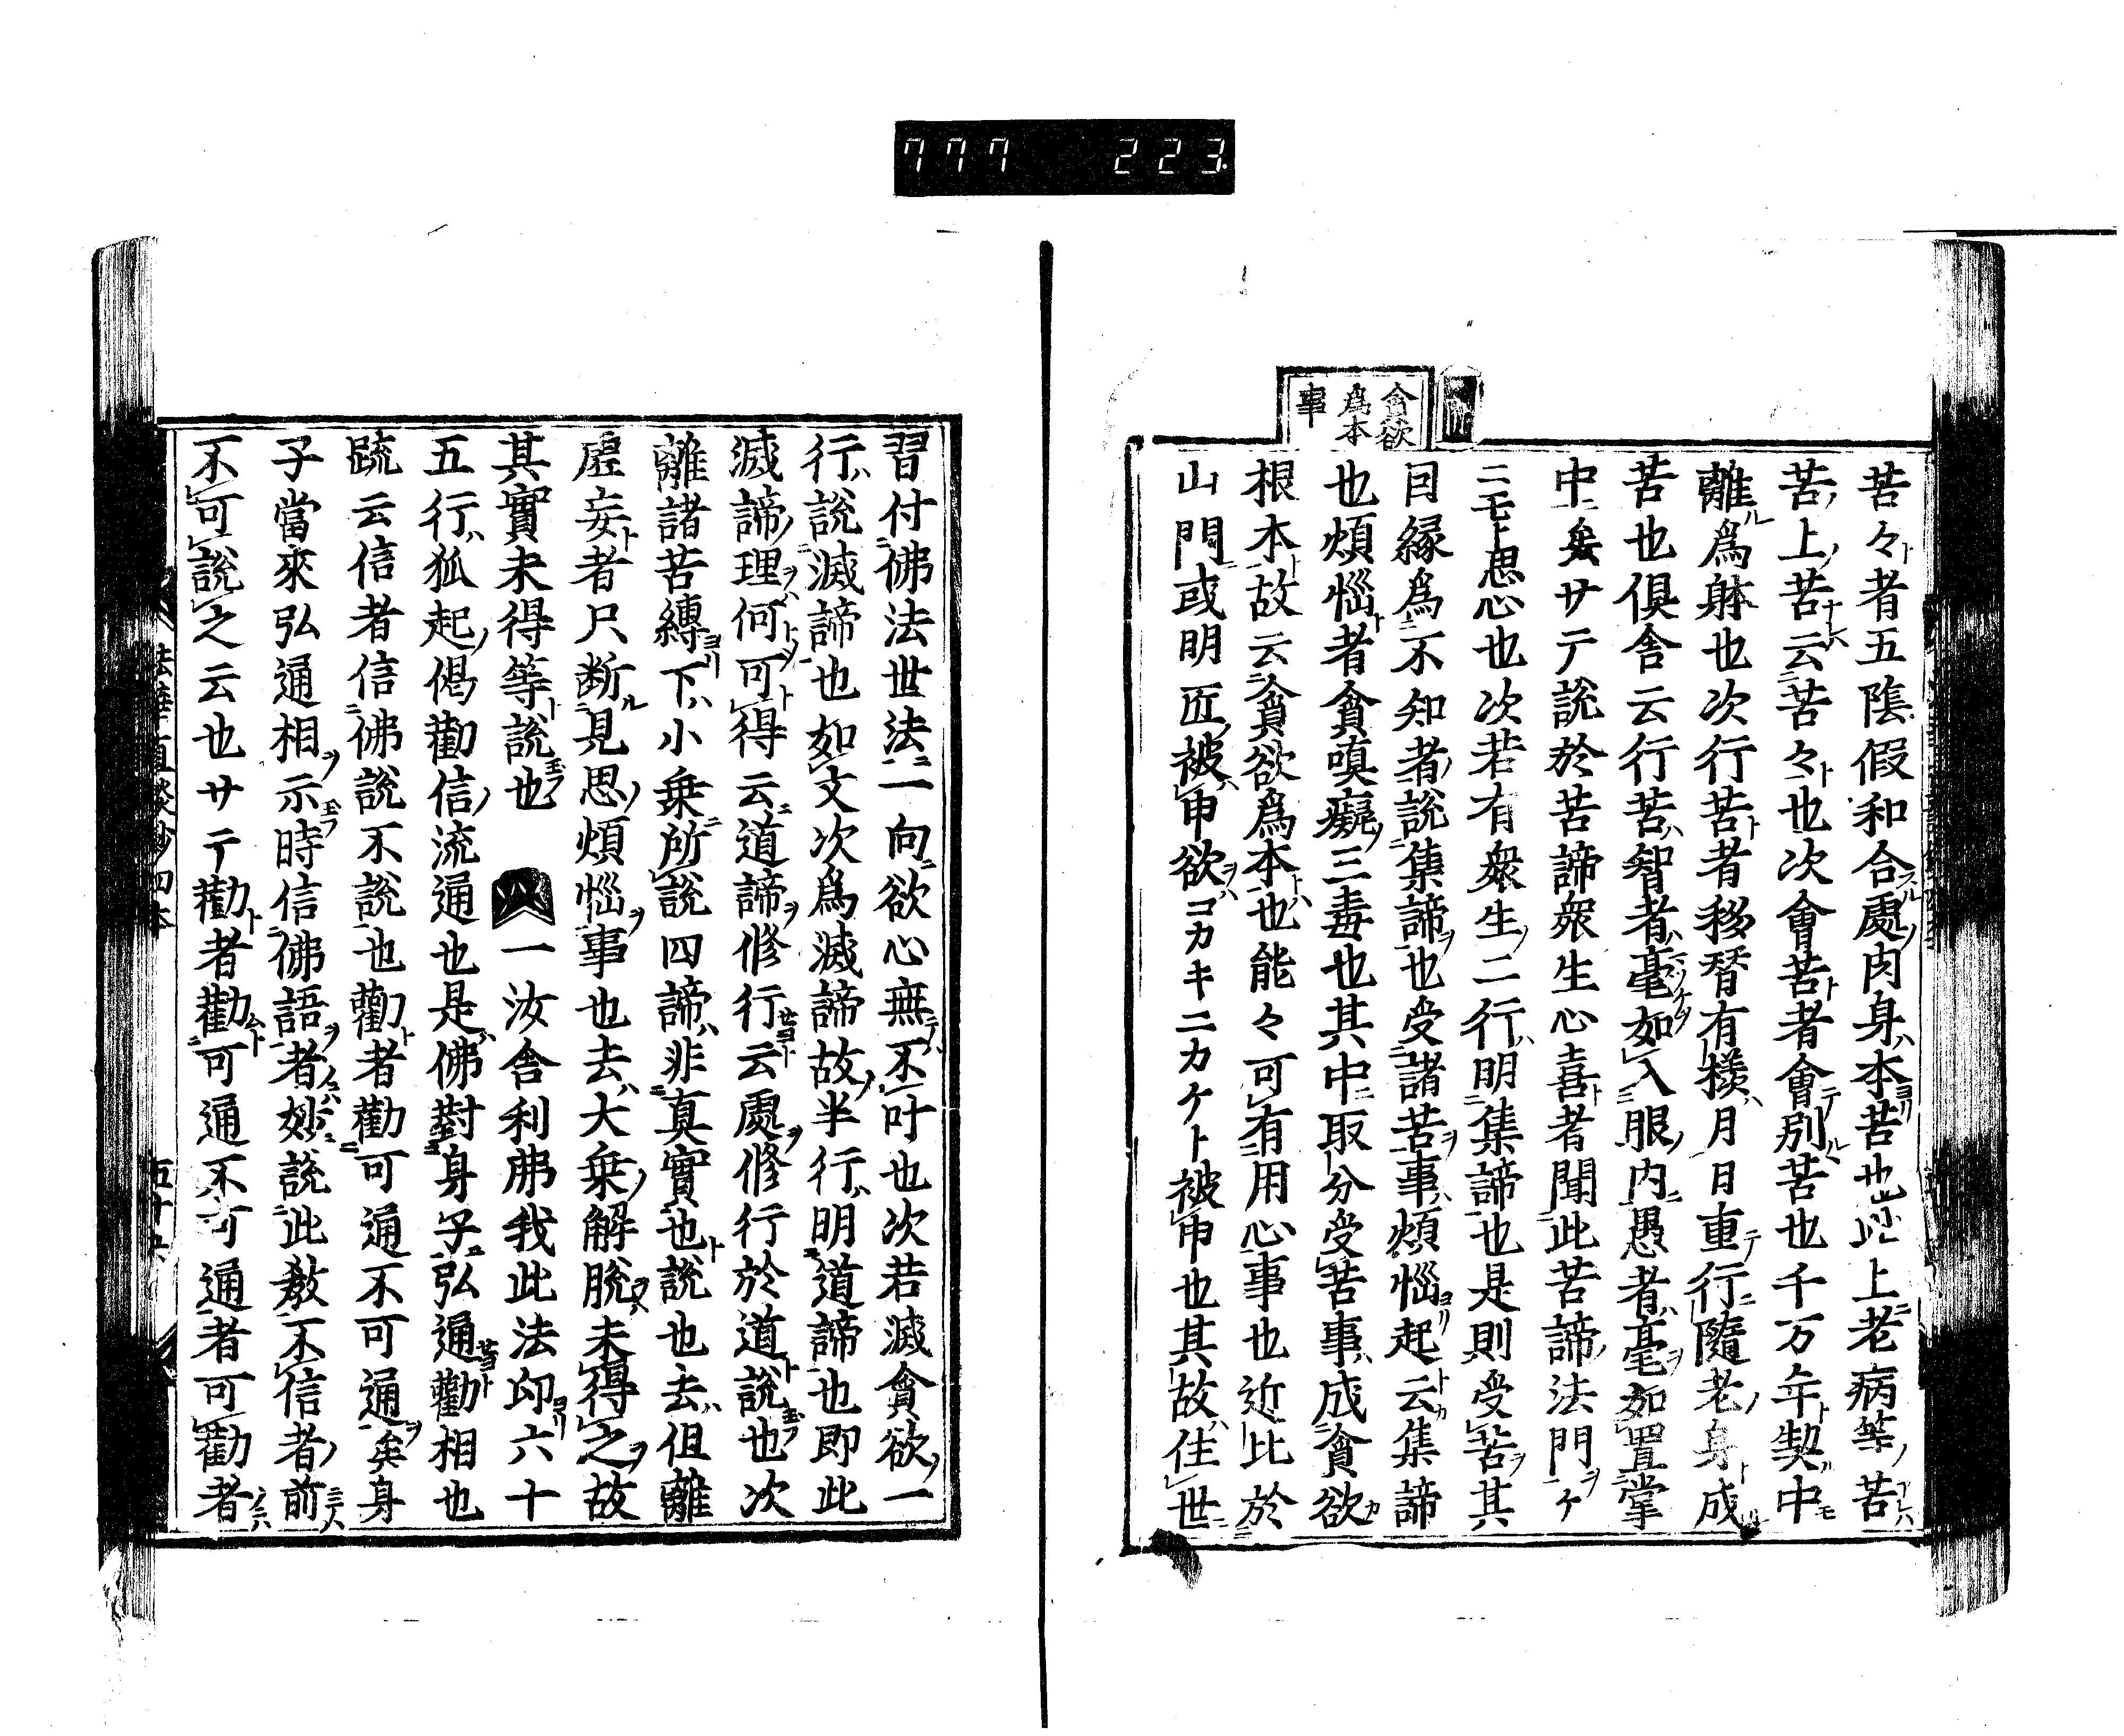 777 223
貪欲
爲本
事
苦々者五陰假和合處肉身本苦也此上老病等苦
苦上苦云苦々也次會苦者會別苦也千万年契中
離爲躰也次行苦者移替有樣月日重行隨老身成
苦也俱舍云行苦智者毫如入眼内愚者毫如置掌
中矣サテ説於苦諦衆生心喜者聞此苦諦法門ヲケ
ニモト思心也次若有衆生二行明集諦也是則受苦其
因緣爲不知者説集諦也受諸苦事煩惱起云集諦
也煩惱者貪嗔癡三毒也其中取分受苦事成貪欲
根本故云貪欲爲本也能々可有用心事也近比於
山門或明匠被申欲コカキニカケト被申也其故住世
習付佛法世法一向欲心無不叶也次若滅貪欲一
行説滅諦也如文次爲滅諦故半行明道諦也即此
滅諦理何可得云道諦修行云處修行於道説也次
離諸苦縛下小乗所説四諦非真實也説也去但離
虚妄者只断見思煩惱事也去大乗解脱未得之故
其實未得等説也 一汝舍利弗我此法印六十
五行孤起偈勸信流通也是佛對身子弘通勸相也
疏云信者信佛説不説也勸者勸可通不可通矣身
子當來弘通相示時信佛語者妙説此教不信者前
不可説之云也サテ勸者勸可通不可通者可勸者
法華直談鈔四本